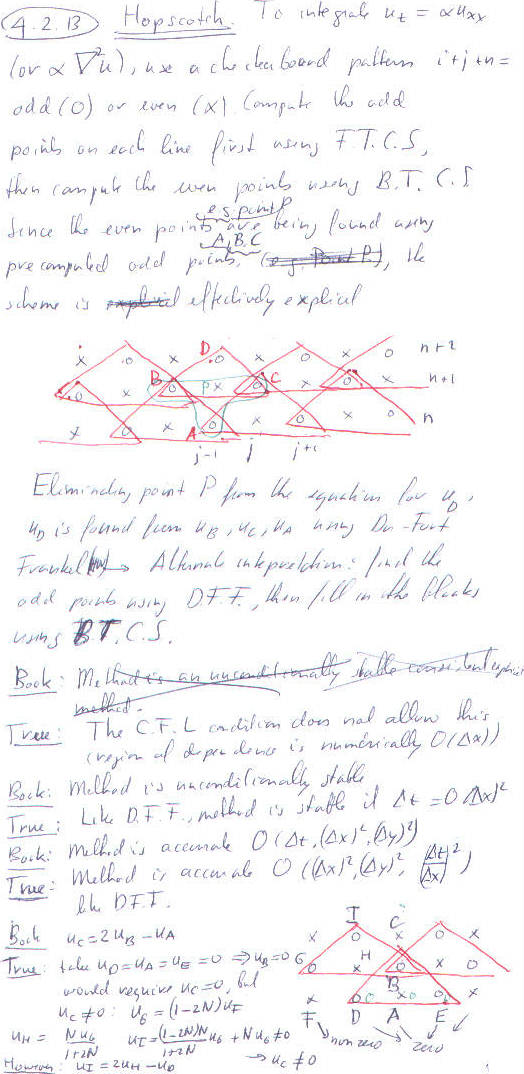 4.2.13 Hopscotch. To integrate u_t = αu_xx
(or α ∇²u), use a checkerboard pattern i+j+n =
odd (O) or even (X). Compute the odd
points on each line first using F.T.C.S,
then compute the even points using B.T.C.S
e.g. point P
Since the even points are being found using
A, B, C
precomputed odd points, (e.g. Point P), the
scheme is explicit effectively explicit
x o x D o x o x o n+2
o x B o P x o C x o x n+1
x o x A o x o x o n
j-1 j j+1
Eliminating point P from the equation for u_D,
u_D is found from u_B, u_C, u_A using Du-Fort
Frankel → Alternate interpretation: find the
odd points using D.F.F., then fill in the blanks
using B.T.C.S.
Book: Method is an unconditionally stable consistent explicit
method.
True: The C.F.L condition does not allow this
(region of dependence is numerically O(Δx))
Book: Method is unconditionally stable
True: Like D.F.F., method is stable if Δt = O(Δx)²
Book: Method is accurate O(Δt, (Δx)², (Δy)²)
True: Method is accurate O((Δx)², (Δy)², (Δt/Δx)²)
like DFF.
Book u_C = 2u_B - u_A
True: take u_D = u_A = u_E = 0 ⇒ u_B = 0
would require u_C = 0, but
u_C ≠ 0: u_G = (1-2N)u_F
u_H = Nu_G/1+2N u_I = (1-2N)N/1+2N u_G + Nu_G ≠ 0
→ u_C ≠ 0
However: u_I = 2u_H - u_D
I C
x o x o x
G o x H o B x o
x o D x A o E x
F D A E
nonzero zero